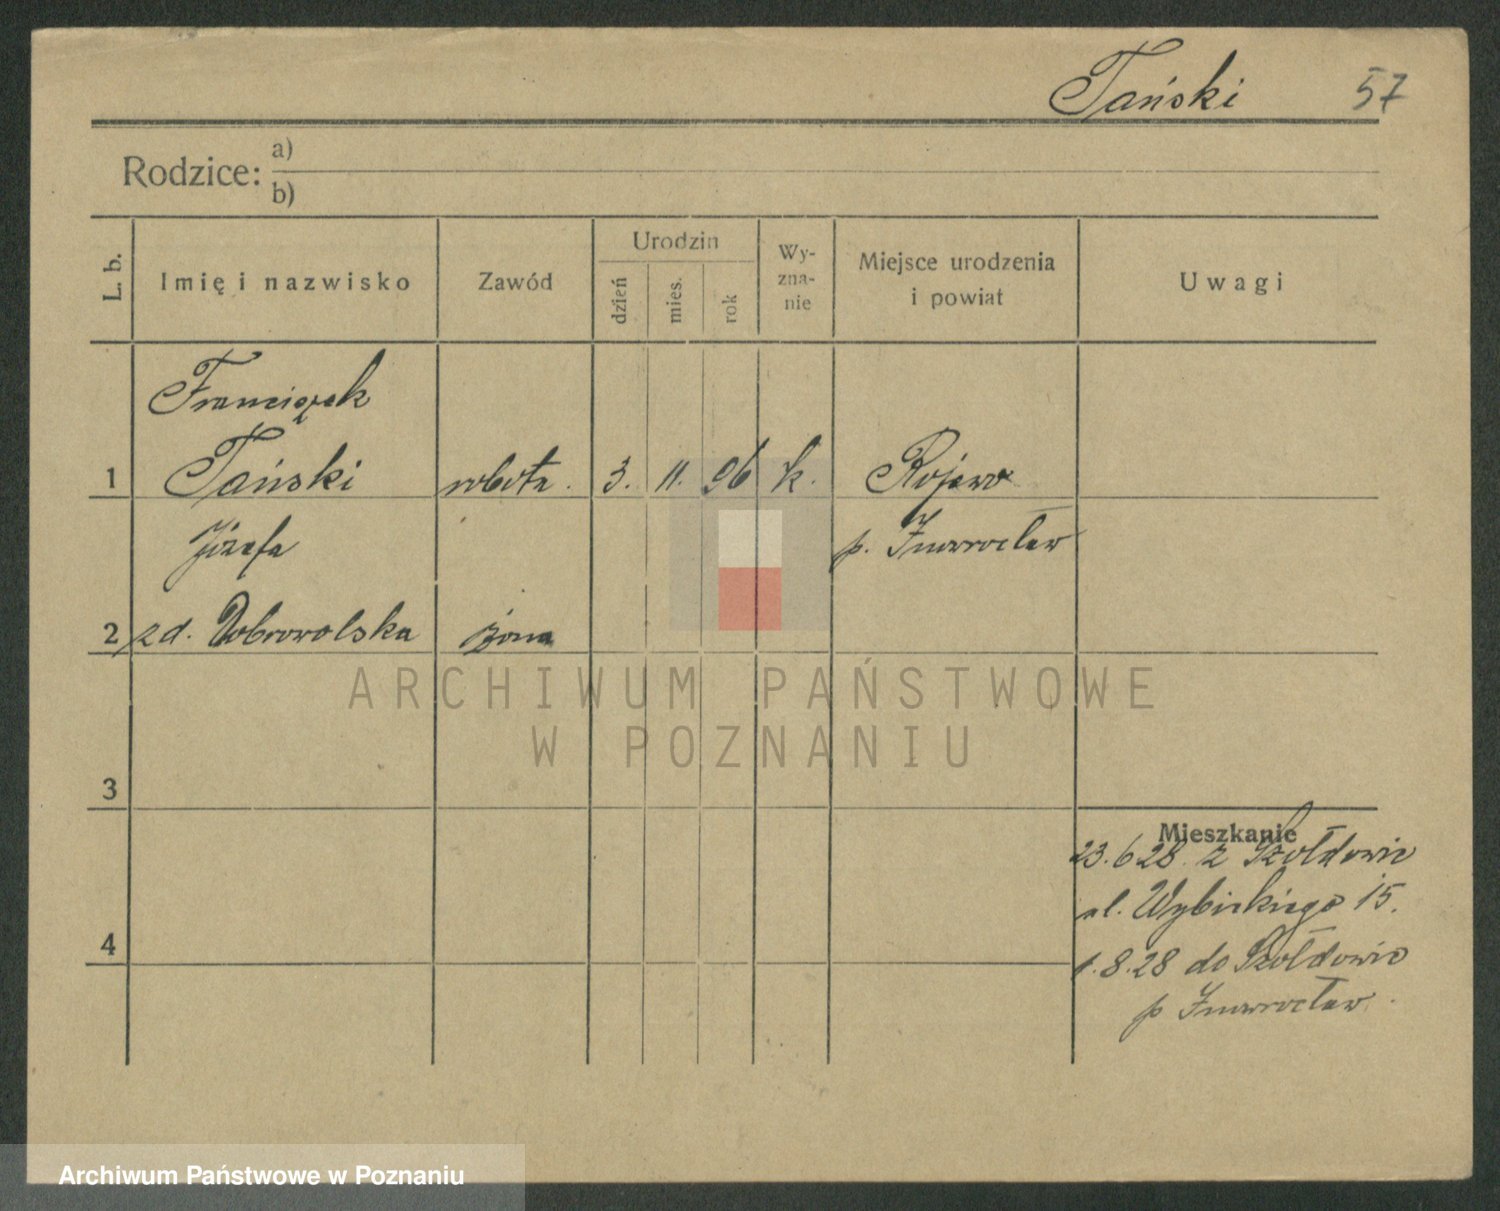 Tański 57
Rodzice: a)
b)
L. b.
Imię i nazwisko
Zawód
Urodzin
dzień
mies.
rok
Wy-
zna-
nie
Miejsce urodzenia
i powiat
Uwagi
Franciszek
1 Tański robotn. 3. 11. 96 k. Rojewo
Józefa p. Inowrocław
2 zd. Dobrowolska żona
3
Mieszkanie
23.6.28. z Szołdowic
ul. Wybickiego 15.
4
1.8.28 do Szołdowic
p Inowrocław.
ARCHIWUM PAŃSTWOWE
W POZNANIU
Archiwum Państwowe w Poznaniu